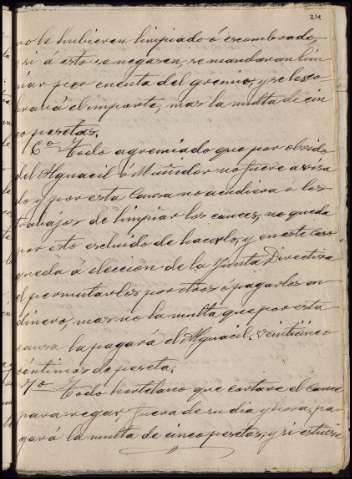 24
no lo hubieren limpiado ó escombrado,
si á esto se negasen, se mandaran lim
piar por cuenta del gremio, y se les co
brará el importe, mas la multa de cin
co pesetas.
6º Todo agremiado que por olvido
del Alguacil ó Muñidor no fuere avisa
do y por esta causa no acudiera á los
trabajos de limpiar los cauces, no queda
por esto escluido de hacerlos, y en este caso
queda á elección de la Junta Directiva
el permutarlos por otros ó pagarlos en
dinero, mas no la multa que por esta
causa la pagará el Alguacil. veinticinco
céntimos de peseta.
7º Todo hortelano que cortare el cauce
para regar fuera de su dia y hora, pa
gará la multa de cinco pesetas, y si estuvie